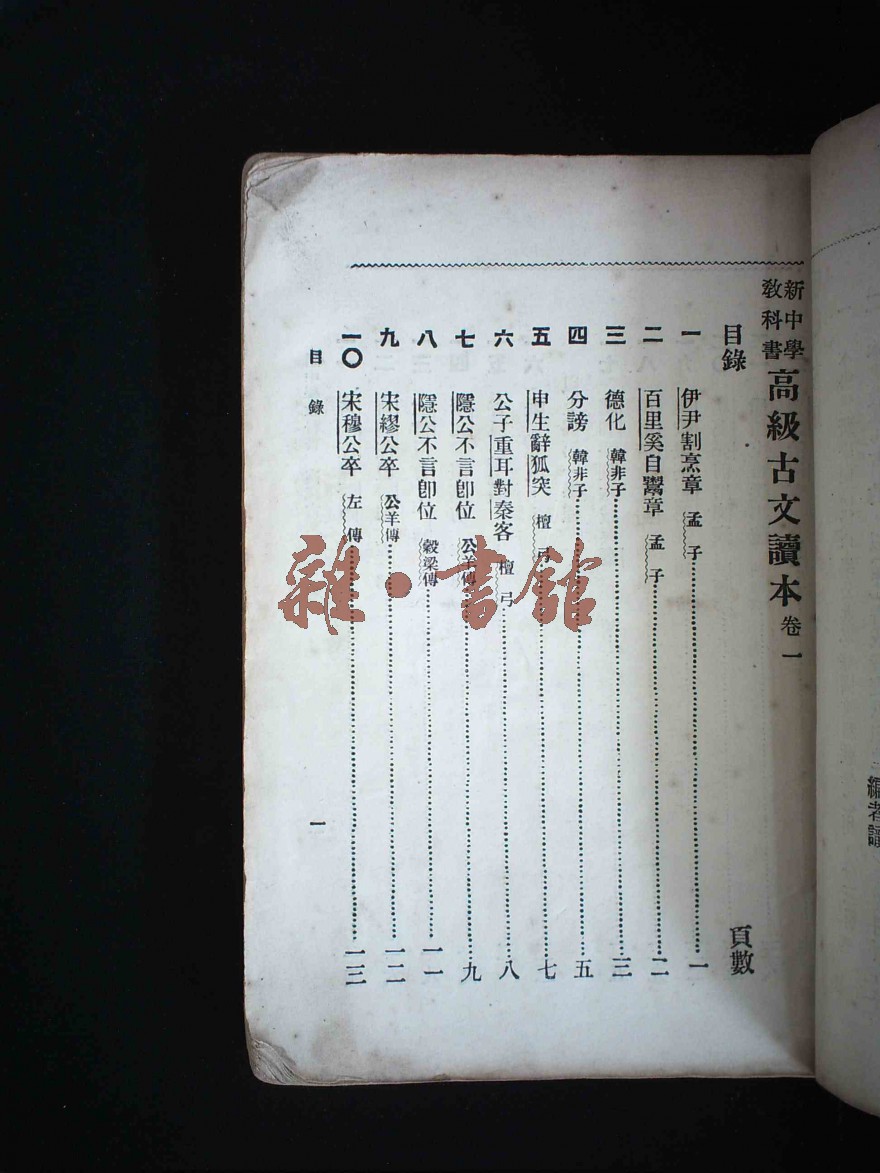 新中學教科書高級古文讀本卷一
目錄 頁數
一 伊尹割烹章 孟子 一
二 百里奚自鬻章 孟子 二
三 德化 韓非子 三
四 分謗 韓非子 五
五 申生辭狐突 檀弓 七
六 公子重耳對秦客 檀弓 八
七 隱公不言卽位 公羊傳 九
八 隱公不言卽位 穀梁傳 一一
九 宋繆公卒 公羊傳 一二
一〇 宋穆公卒 左傳 一三
目錄 一
雜·書館
編者識